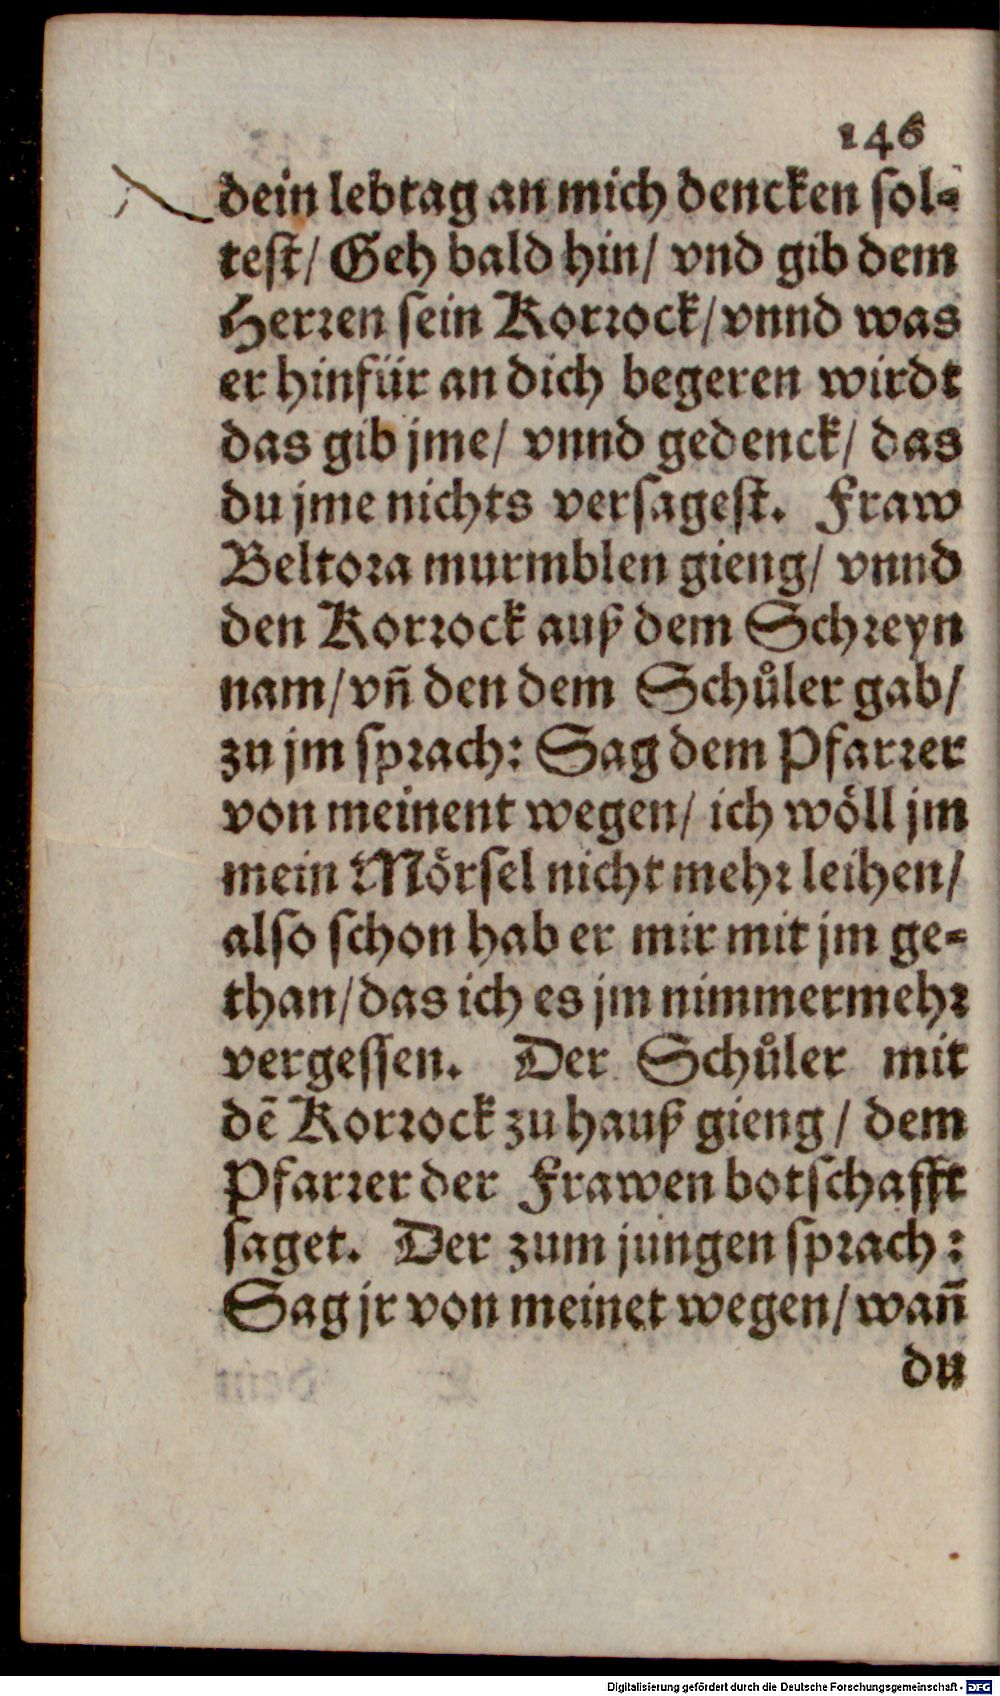 146
dein lebtag an mich dencken sol-
test/ Geh bald hin/ vnd gib dem
Herren sein Korrock/ vnnd was
er hinfür an dich begeren wirdt
das gib jme/ vnnd gedenck/ das
du jme nichts versagest. Fraw
Beltora murmblen gieng/ vnnd
den Korrock auß dem Schreyn
nam/ vñ den dem Schůler gab/
zu jm sprach: Sag dem Pfarrer
von meinent wegen/ ich wöll jm
mein Mörsel nicht mehr leihen/
also schon hab er mir mit jm ge-
than/ das ich es jm nimmermehr
vergessen. Der Schůler mit
dē Korrock zu hauß gieng/ dem
Pfarrer der Frawen botschafft
saget. Der zum jungen sprach:
Sag jr von meinet wegen/ wañ
du
Digitalisierung gefördert durch die Deutsche Forschungsgemeinschaft - DFG